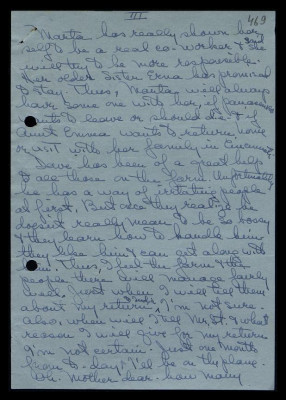 III
469
Martha has really shown her-
self to be a real co-worker & said she
will try to be more responsible.
Her older sister Erna has promised
to stay. Thus, Martha will always
have some one with her, if
wants to leave or should die & if
Aunt Emma wants to return home
or visit with her family in Cincinnati.
Dave has been of a great help
to all those on the farm. Unfortunately
he has a way of irritating people
at first, But once they realize he
doesn't really mean to be so bossy
& they learn how to handle him
they like him & can get along with
him. Thus, I feel the farm & the
people there will manage fairly
well. Just when I will tell them
about my return, I'm not sure.
Also, when will I tell Mr. St. & what
reason I will give for my return
I'm not certain. Just one month
from to-day I'll be on the plane.
Oh, Mother dear - how many